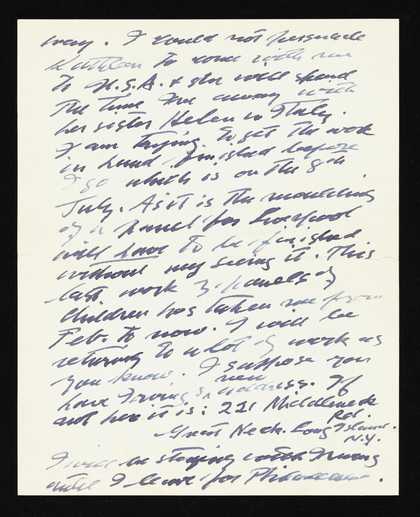 away. I could not persuade
Kathleen to come with me
to U.S.A. & she will spend
the time I'm away with
her sister Helen in Italy.
I am trying to get the work
in hand finished before
I go which is on the 8th
July. As it is the moulding
of a panel for Liverpool
will have to be finished
without my seeing it. This
last work 3 panels of
Children has taken me from
Feb. to now. I will be
returning to a lot of work as
you know. I suppose you
have Irving's new address. If
not here it is: 221 Middleneck
Rd.
Great Neck. Long Island.
N.Y.
I will be staying with Irving
until I leave for